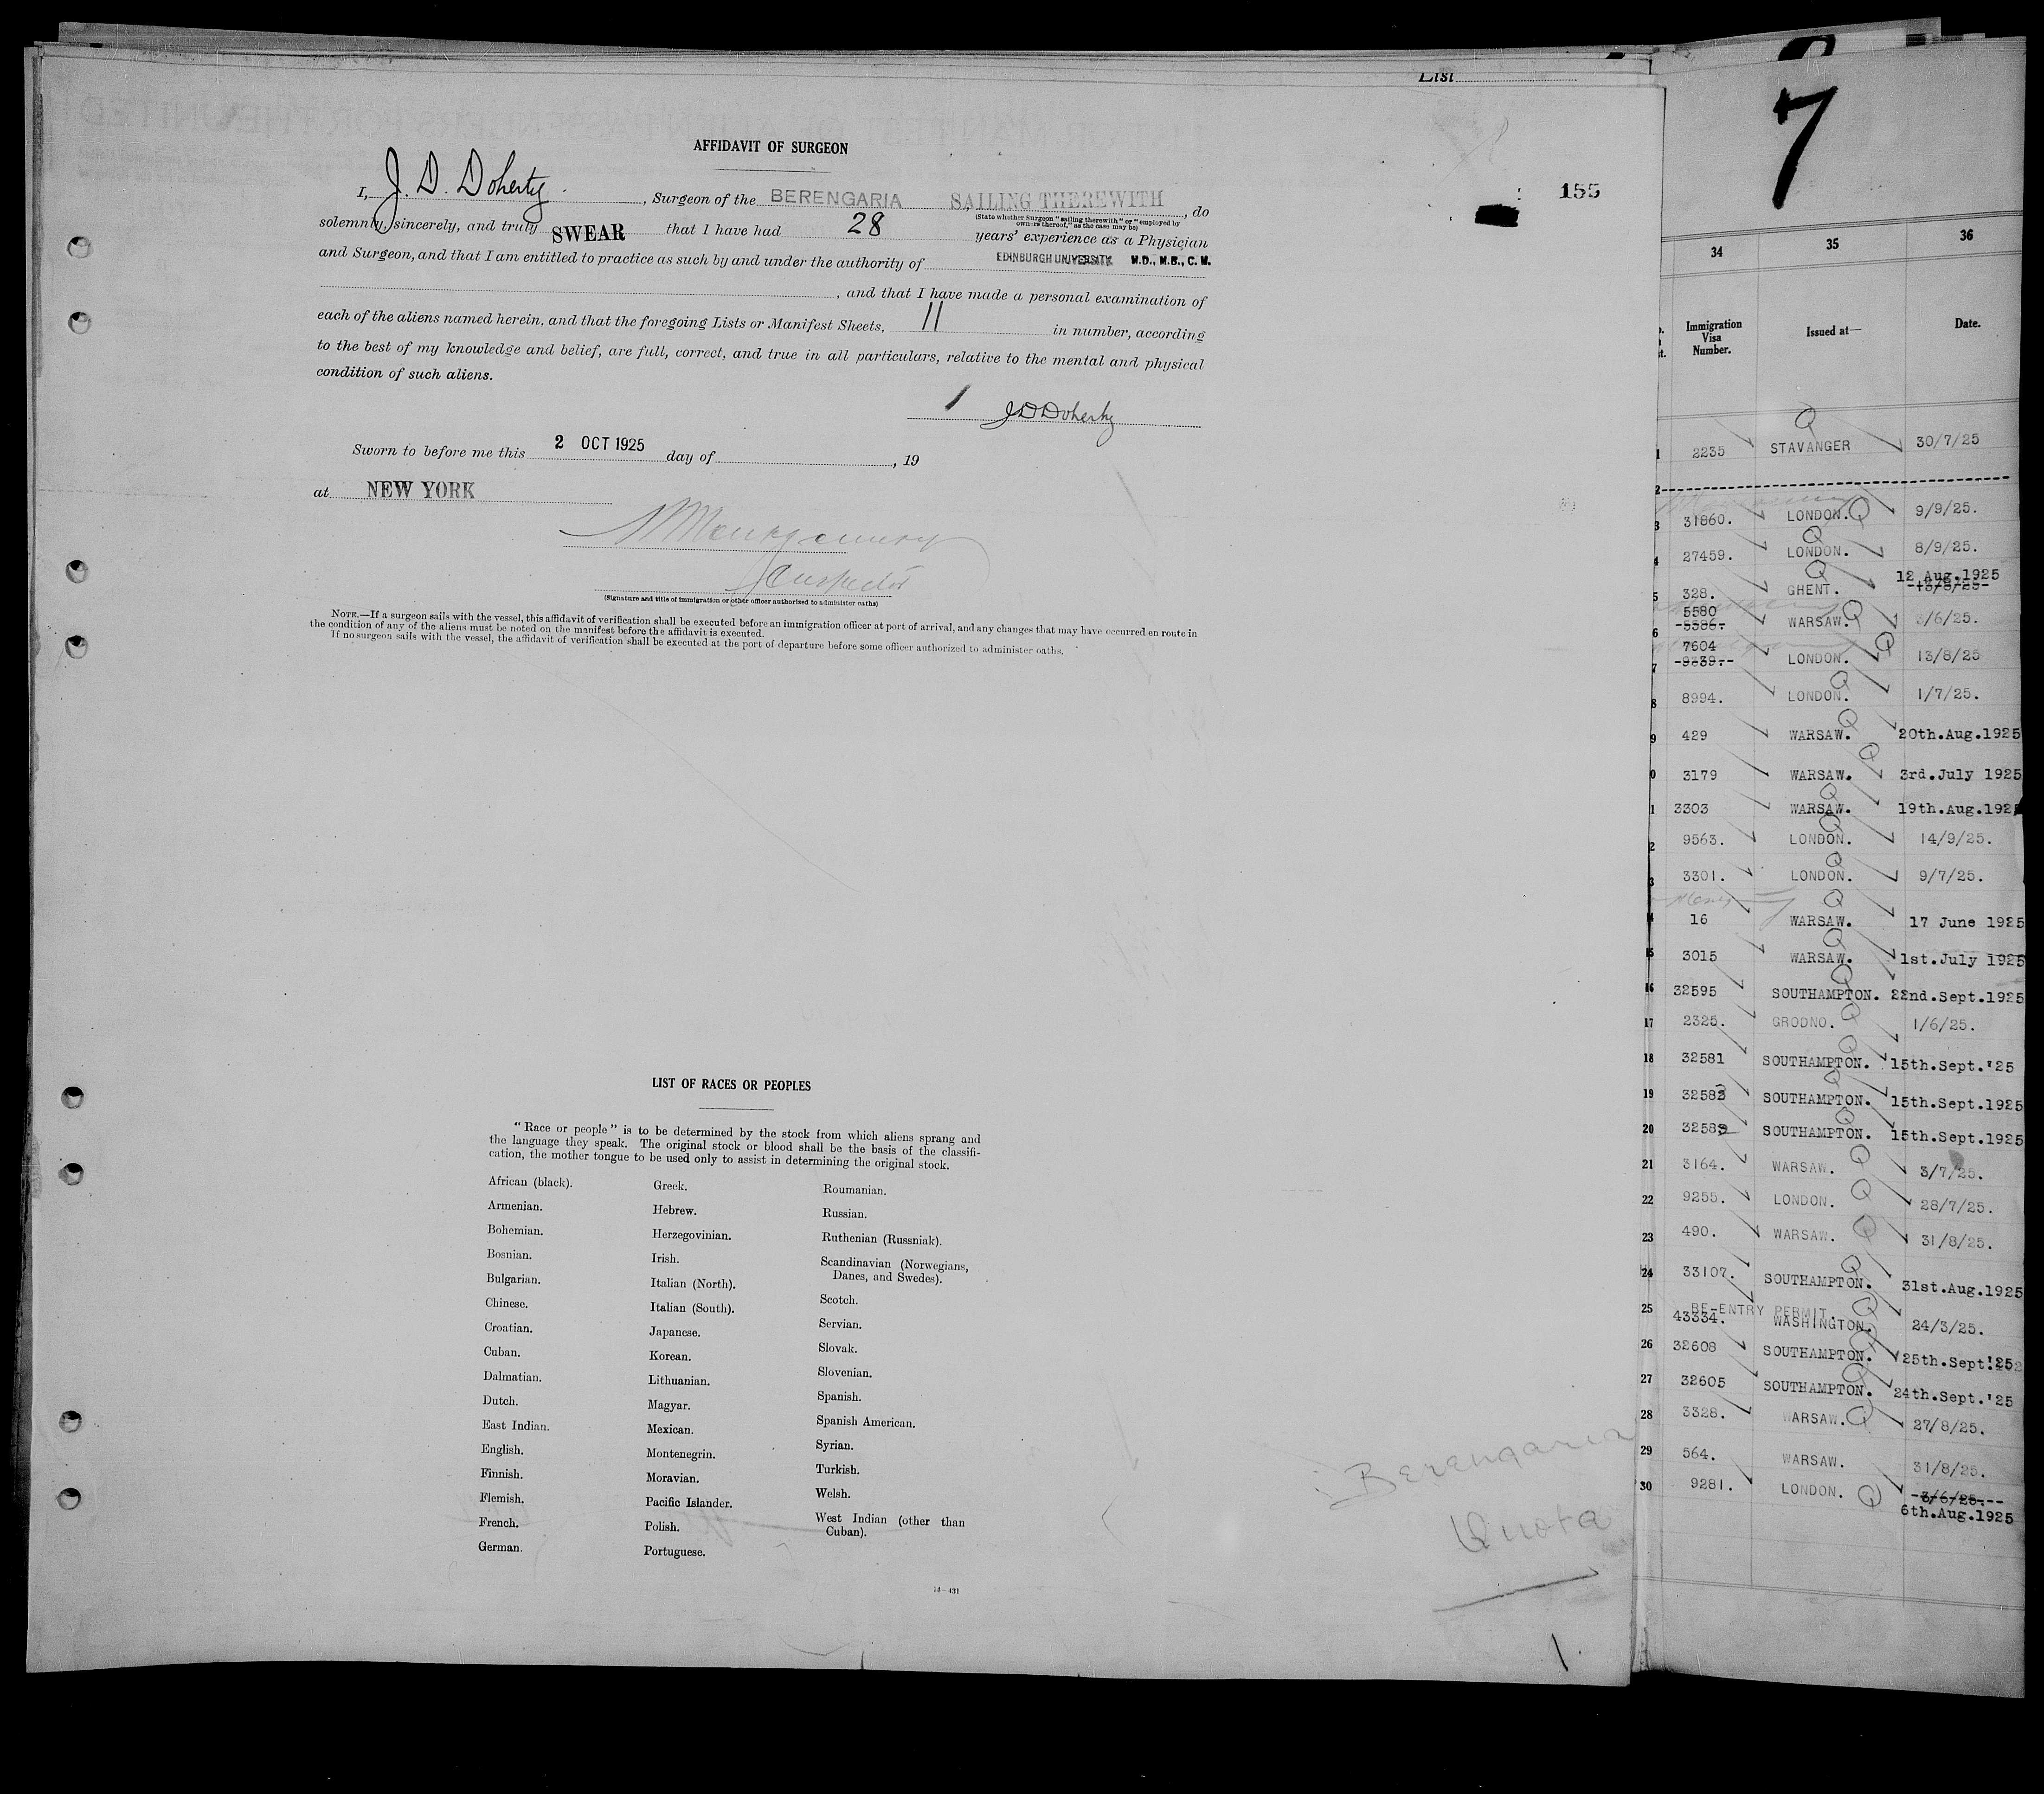 List
7
155
AFFIDAVIT OF SURGEON
I, J. D. Doherty, Surgeon of the BERENGARIA SAILING THEREWITH, do
(State whether Surgeon "sailing therewith" or "employed by owners thereof," as the case may be)
solemnly, sincerely, and truly SWEAR that I have had 28 years' experience as a Physician
and Surgeon, and that I am entitled to practice as such by and under the authority of EDINBURGH UNIVERSITY M.D., M.B., C.M.
, and that I have made a personal examination of
each of the aliens named herein, and that the foregoing Lists or Manifest Sheets, 11 in number, according
to the best of my knowledge and belief, are full, correct, and true in all particulars, relative to the mental and physical
condition of such aliens.
J D Doherty
Sworn to before me this 2 OCT 1925 day of , 19
at NEW YORK
Montgomery
Inspector
(Signature and title of immigration or other officer authorized to administer oaths)
NOTE.—If a surgeon sails with the vessel, this affidavit of verification shall be executed before an immigration officer at port of arrival, and any changes that may have occurred en route in
the condition of any of the aliens must be noted on the manifest before the affidavit is executed.
If no surgeon sails with the vessel, the affidavit of verification shall be executed at the port of departure before some officer authorized to administer oaths.
LIST OF RACES OR PEOPLES
"Race or people" is to be determined by the stock from which aliens sprang and
the language they speak. The original stock or blood shall be the basis of the classifi-
cation, the mother tongue to be used only to assist in determining the original stock.
African (black).
Armenian.
Bohemian.
Bosnian.
Bulgarian.
Chinese.
Croatian.
Cuban.
Dalmatian.
Dutch.
East Indian.
English.
Finnish.
Flemish.
French.
German.
Greek.
Hebrew.
Herzegovinian.
Irish.
Italian (North).
Italian (South).
Japanese.
Korean.
Lithuanian.
Magyar.
Mexican.
Montenegrin.
Moravian.
Pacific Islander.
Polish.
Portuguese.
Roumanian.
Russian.
Ruthenian (Russniak).
Scandinavian (Norwegians,
Danes, and Swedes).
Scotch.
Servian.
Slovak.
Slovenian.
Spanish.
Spanish American.
Syrian.
Turkish.
Welsh.
West Indian (other than
Cuban).
14—431
Berengaria
Quota
34 35 36
Immigration Visa Number. Issued at— Date.
1 2235 STAVANGER Q 30/7/25
2
3 31860. LONDON. Q 9/9/25.
4 27459. LONDON. Q 8/9/25.
12 Aug.1925
5 328. GHENT. Q
5580
6 WARSAW. Q 3/6/25.
7604
7 -9639.-- LONDON. Q 13/8/25
8 8994. LONDON. Q 1/7/25.
9 429 WARSAW. Q 20th.Aug.1925
0 3179 WARSAW. Q 3rd.July 1925
1 3303 WARSAW. Q 19th.Aug.1925
2 9563. LONDON. Q 14/9/25.
3 3301. LONDON. Q 9/7/25.
14 16 WARSAW. Q 17 June 1925
15 3015 WARSAW. Q 1st.July 1925
16 32595 SOUTHAMPTON. Q 22nd.Sept.1925
17 2325. GRODNO. Q 1/6/25.
18 32581 SOUTHAMPTON. Q 15th.Sept.'25
19 32583 SOUTHAMPTON. Q 15th.Sept.1925
20 32582 SOUTHAMPTON. Q 15th.Sept.1925
21 3164. WARSAW. Q 3/7/25.
22 9255. LONDON. Q 28/7/25.
23 490. WARSAW. Q 31/8/25.
24 33107. SOUTHAMPTON. Q 31st.Aug.1925
25 RE-ENTRY PERMIT. Q
43334. WASHINGTON. 24/3/25.
26 32608 SOUTHAMPTON. Q 25th.Sept!25
27 32605 SOUTHAMPTON. Q 24th.Sept.'25
28 3328. WARSAW. Q 27/8/25.
29 564. WARSAW. 31/8/25.
30 9281. LONDON. Q -3/6/25.--
6th.Aug.1925